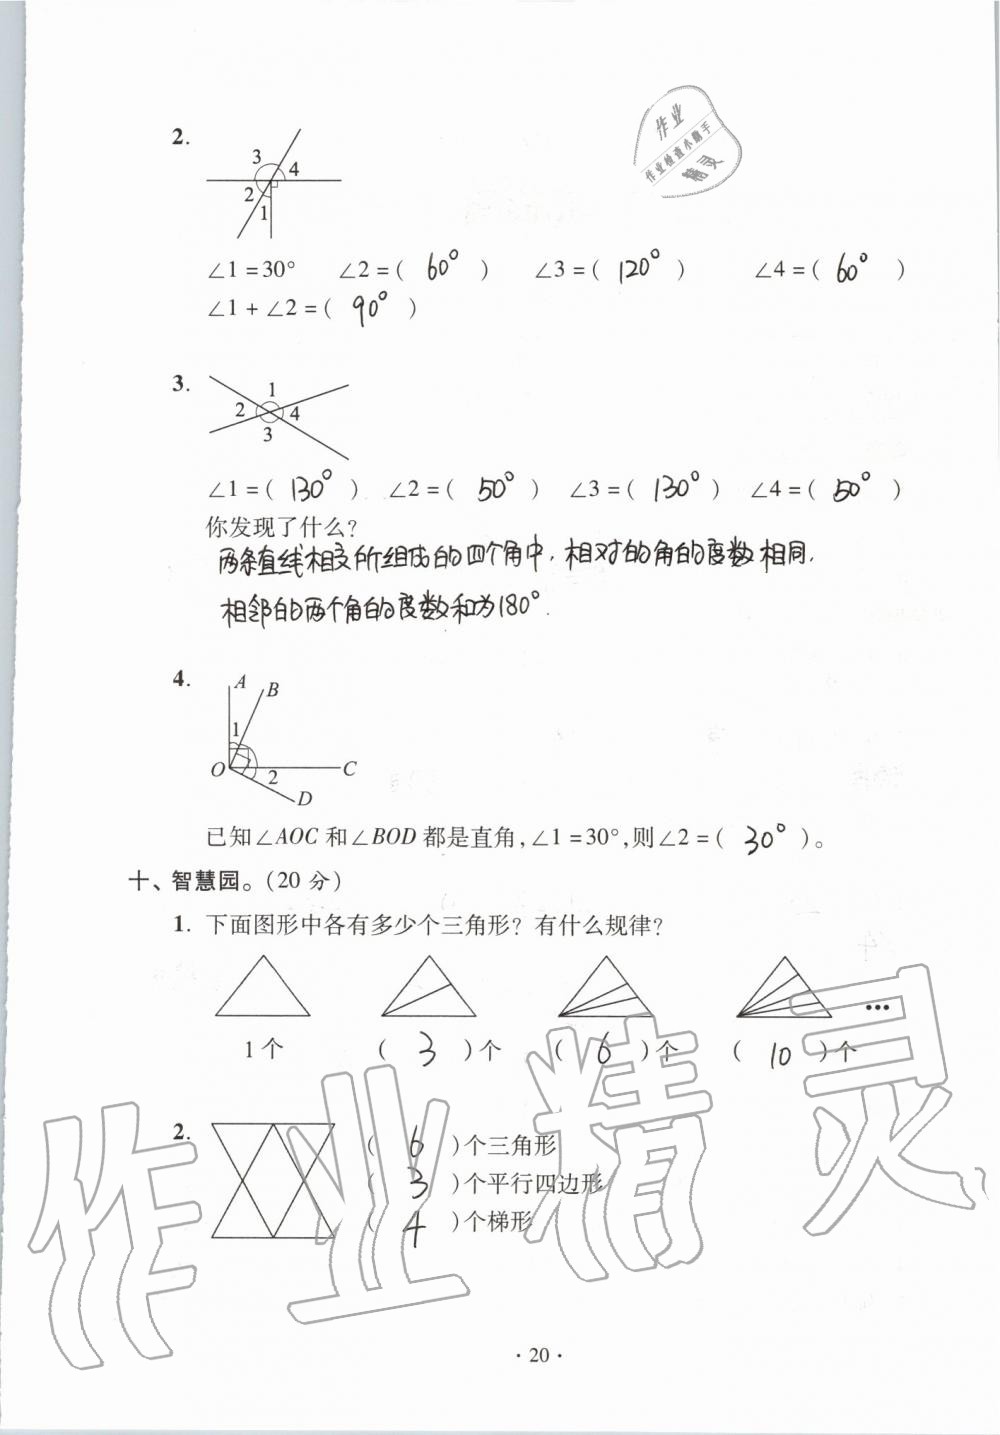 作业
作业检查小助手
精灵
2.
3
4
2
1
∠1=30° ∠2=( 60° ) ∠3=( 120° ) ∠4=( 60° )
∠1+∠2=( 90° )
3.
1
2 4
3
∠1=( 130° ) ∠2=( 50° ) ∠3=( 130° ) ∠4=( 50° )
你发现了什么?
两条直线相交所组成的四个角中,相对的角的度数相同,
相邻的两个角的度数和为180°.
4.
A B
1
O 2 C
D
已知∠AOC 和∠BOD 都是直角,∠1=30°,则∠2=( 30° )。
十、智慧园。(20 分)
1. 下面图形中各有多少个三角形? 有什么规律?
…
1个 ( 3 )个 ( 6 )个 ( 10 )个
2. ( 6 )个三角形
( 3 )个平行四边形
( 4 )个梯形
作业精灵
· 20 ·